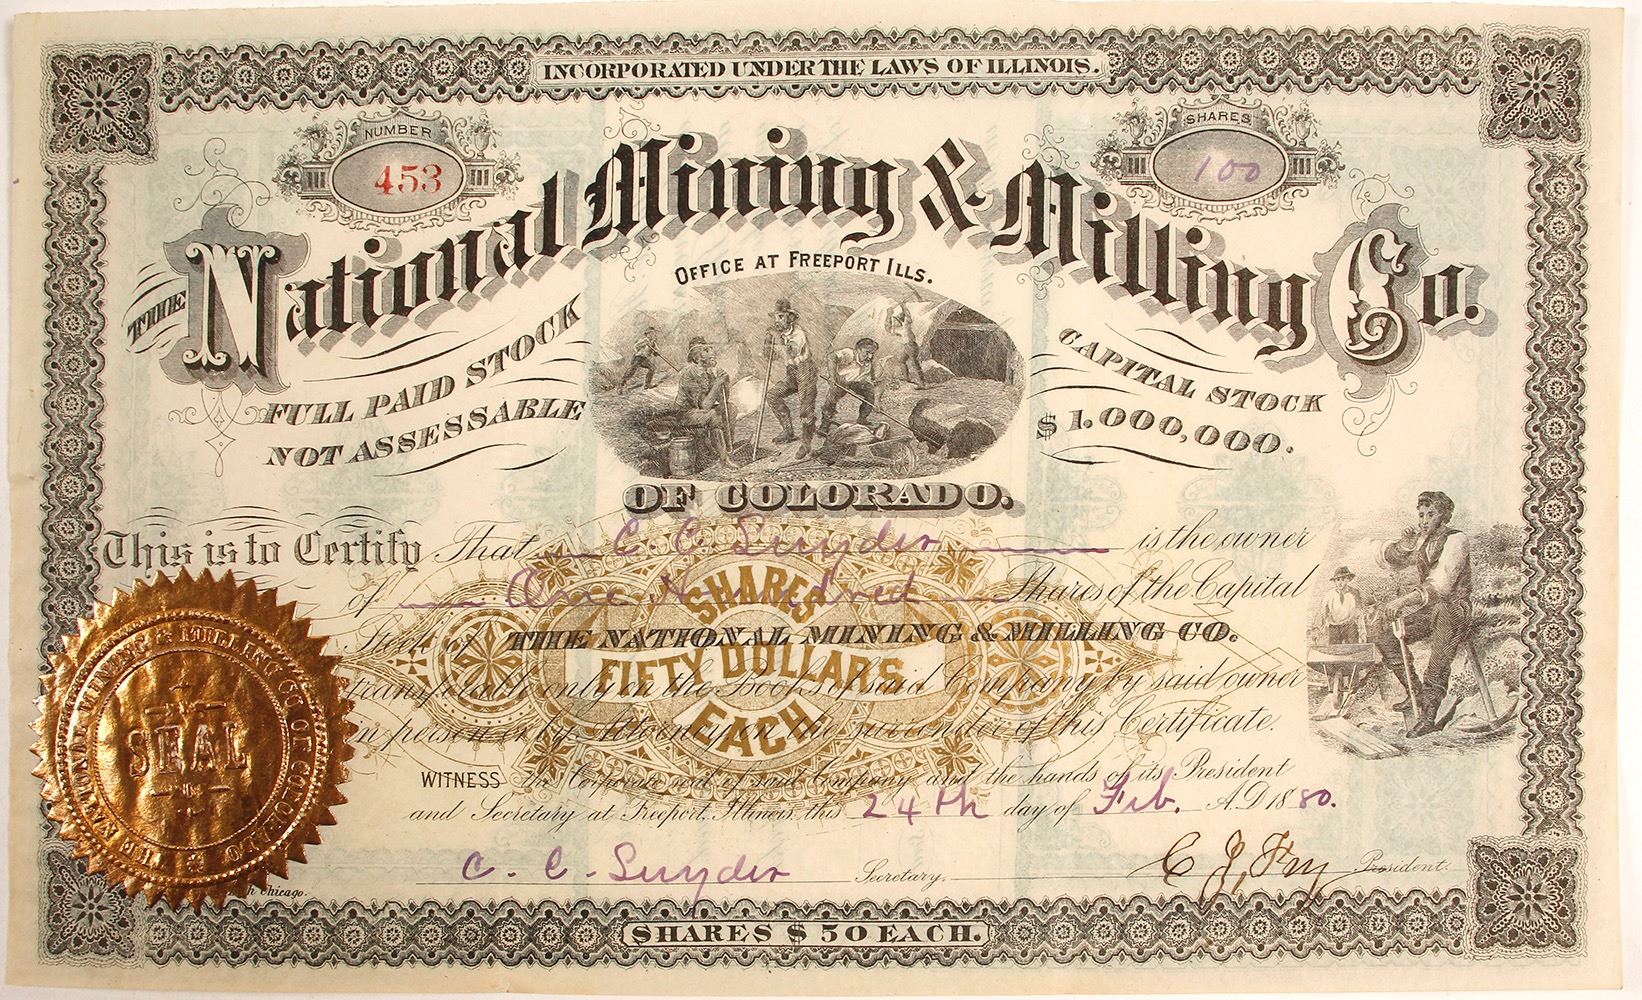 INCORPORATED UNDER THE LAWS OF ILLINOIS.
NUMBER
453
SHARES
100
THE National Mining & Milling Co.
OFFICE AT FREEPORT ILLS.
FULL PAID STOCK
NOT ASSESSABLE
CAPITAL STOCK
$1.000,000.
OF COLORADO.
This is to Certify That C. C. Snyder is the owner
of One Hundred Shares of the Capital
Stock of THE NATIONAL MINING & MILLING CO.
transferable only on the Books of said Company by said owner
in person or by Attorney on the surrender of this Certificate.
SHARES
FIFTY DOLLARS
EACH
WITNESS the Corporate seal of said Company and the hands of its President
and Secretary at Freeport, Illinois, this 24th day of Feb. A.D. 1880.
C. C. Snyder Secretary. C J, Fry President.
THE NATIONAL MINING & MILLING CO OF COLORADO
SEAL
Chicago.
SHARES $50 EACH.